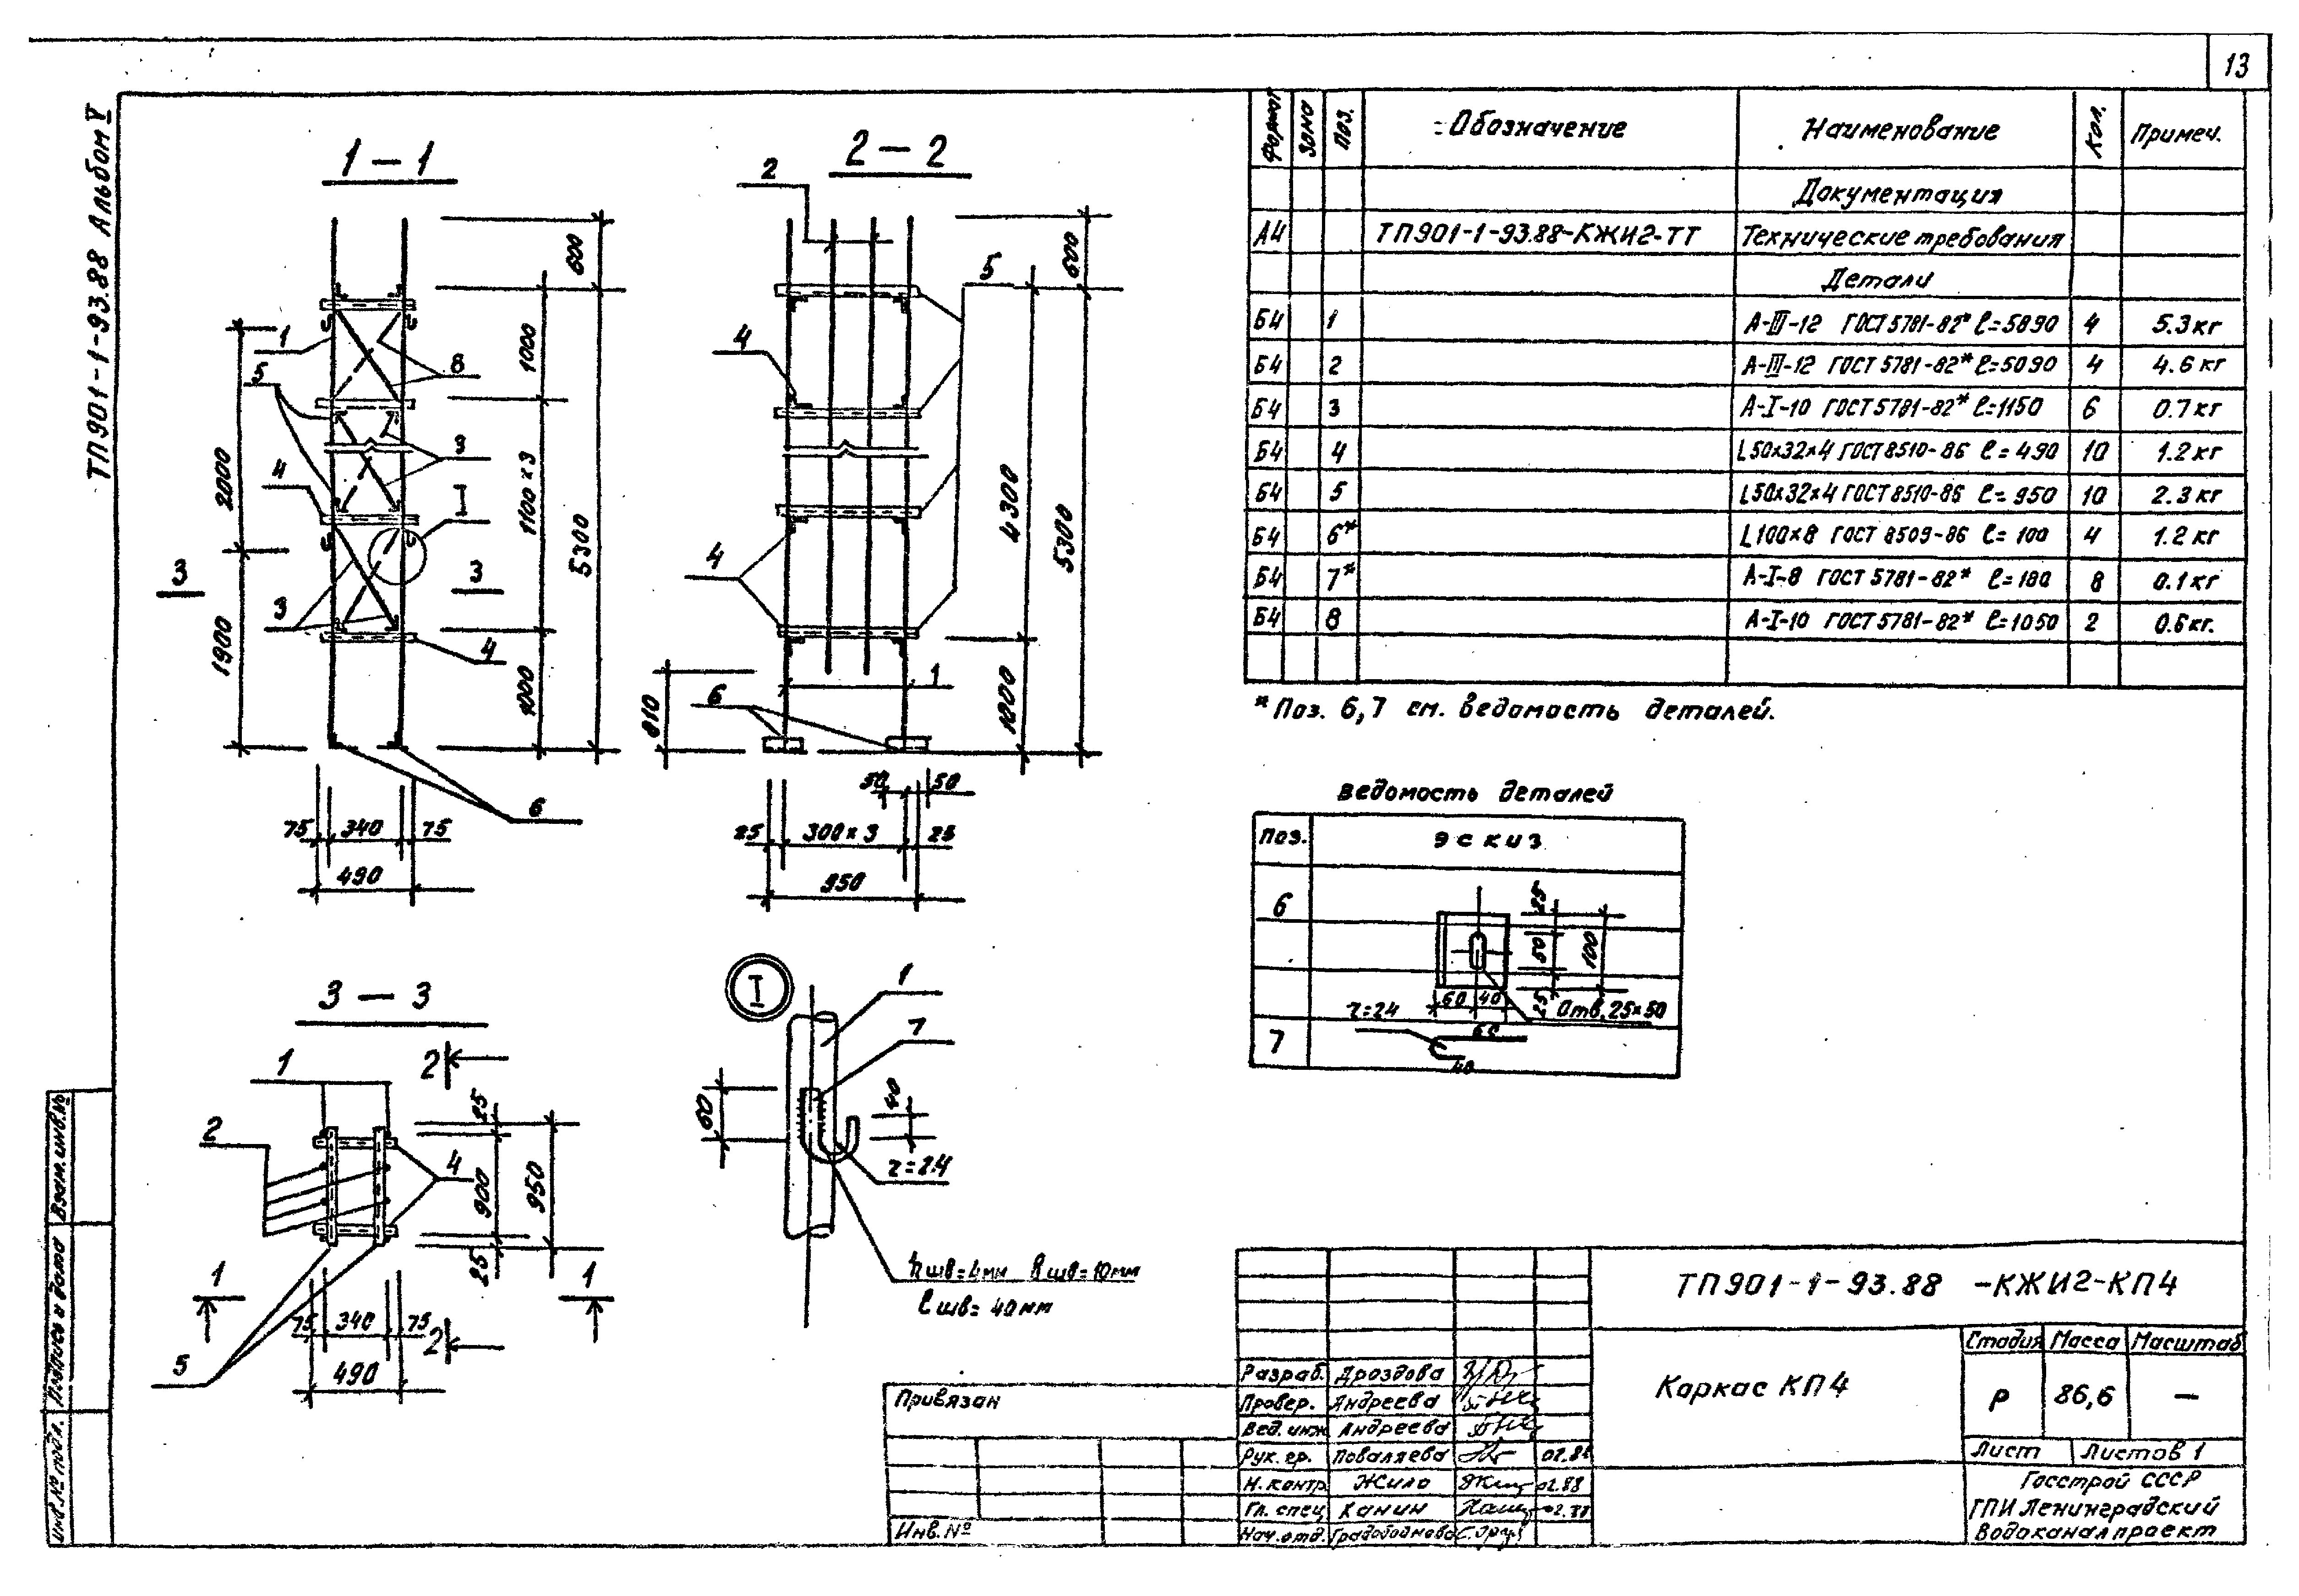 13
ТП901-1-93.88 Альбом V
1-1
600
1000
1100×3
1000
5300
2000
1900
1
5
8
3
4
I
3
3
3
4
6
75 340 75
490
2-2
2
5
4
4
600
4300
5300
1000
810
1
6
50 50
25 300×3 25
950
3-3
1
2
2
4
25
900
950
25
1
1
75 340 75
2
5
490
I
1
7
60
40
r=24
hшв=4мм bшв=10мм
ℓшв=40мм
Формат Зона Поз. Обозначение Наименование Кол. Примеч.
Документация
А4 ТП901-1-93.88-КЖИ2-ТТ Технические требования
Детали
Б4 1 А-III-12 ГОСТ 5781-82* ℓ=5890 4 5.3кг
Б4 2 А-III-12 ГОСТ 5781-82* ℓ=5090 4 4.6кг
Б4 3 А-I-10 ГОСТ 5781-82* ℓ=1150 6 0.7кг
Б4 4 L50×32×4 ГОСТ 8510-86 ℓ=490 10 1.2кг
Б4 5 L50×32×4 ГОСТ 8510-86 ℓ=950 10 2.3кг
Б4 6* L100×8 ГОСТ 8509-86 ℓ=100 4 1.2кг
Б4 7* А-I-8 ГОСТ 5781-82* ℓ=180 8 0.1кг
Б4 8 А-I-10 ГОСТ 5781-82* ℓ=1050 2 0.6кг.
*Поз. 6,7 см. ведомость деталей.
Ведомость деталей
Поз. Эскиз
6
25
50
100
25
60 40
Отв. 25×50
r=24
7
40
ТП901-1-93.88 -КЖИ2-КП4
Каркас КП4
Стадия Масса Масштаб
Р 86,6 —
Лист Листов 1
Госстрой СССР
ГПИ Ленинградский
Водоканалпроект
Разраб. Дроздова
Провер. Андреева
Вед. инж Андреева
Рук. гр. Поваляева 02.88
Н. контр. Жило 02.88
Гл. спец Канин 02.88
Нач. отд.
Привязан
Инв. №
Взам. инв. №
Подпись и дата
Инв. № подл.